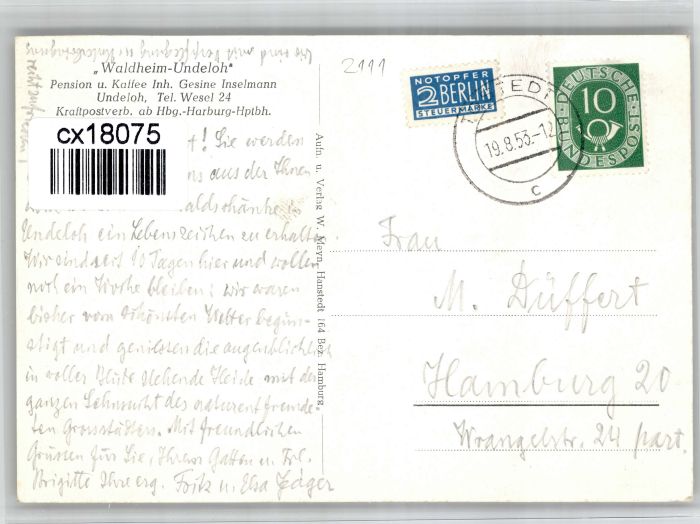 „Waldheim-Undeloh"
Pension u. Kaffee Inh. Gesine Inselmann
Undeloh, Tel. Wesel 24
Kraftpostverb. ab Hbg.-Harburg-Hptbh.
cx18075
2111
NOTOPFER
2 BERLIN
STEUERMARKE
19.8.53.-12
c
DEUTSCHE
10
BUNDESPOST
t! Sie werden
aus der Ihnen
aldschänke in
Undeloh ein Lebenszeichen zu erhalten.
Wir sind seit 10 Tagen hier und wollen
noch ein Woche bleiben; wir waren
bisher vom schönsten Wetter begün-
stigt und geniessen die augenblicklich
in voller Blüte stehende Heide mit der
ganzen Sehnsucht des naturentfremde-
ten Grossstädters. Mit freundlichen
Grüssen für Sie, Ihren Gatten u. Frl.
Brigitte Ihre erg. Fritz u. Elsa Jäger
Aufn. u. Verlag W. Meyn, Hanstedt 164 Bez. Hamburg.
Frau
M. Düffert
Hamburg 20
Wrangelstr. 24 part.